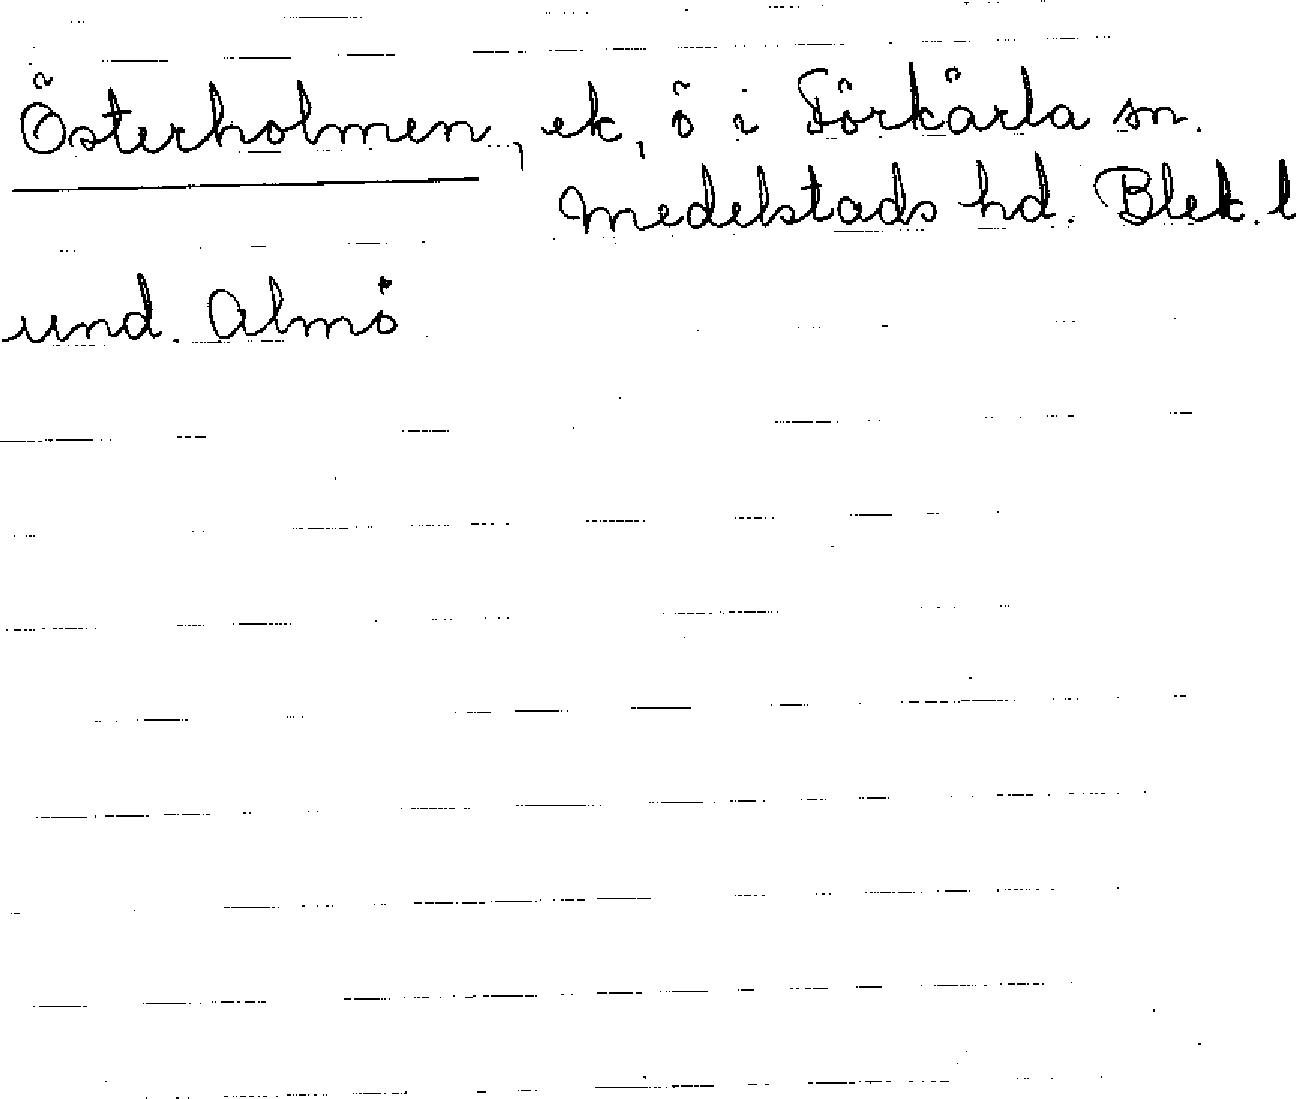 Österholmen, ek, ö i Förkärla sn.
Medelstads hd. Blek. l
und. Almö